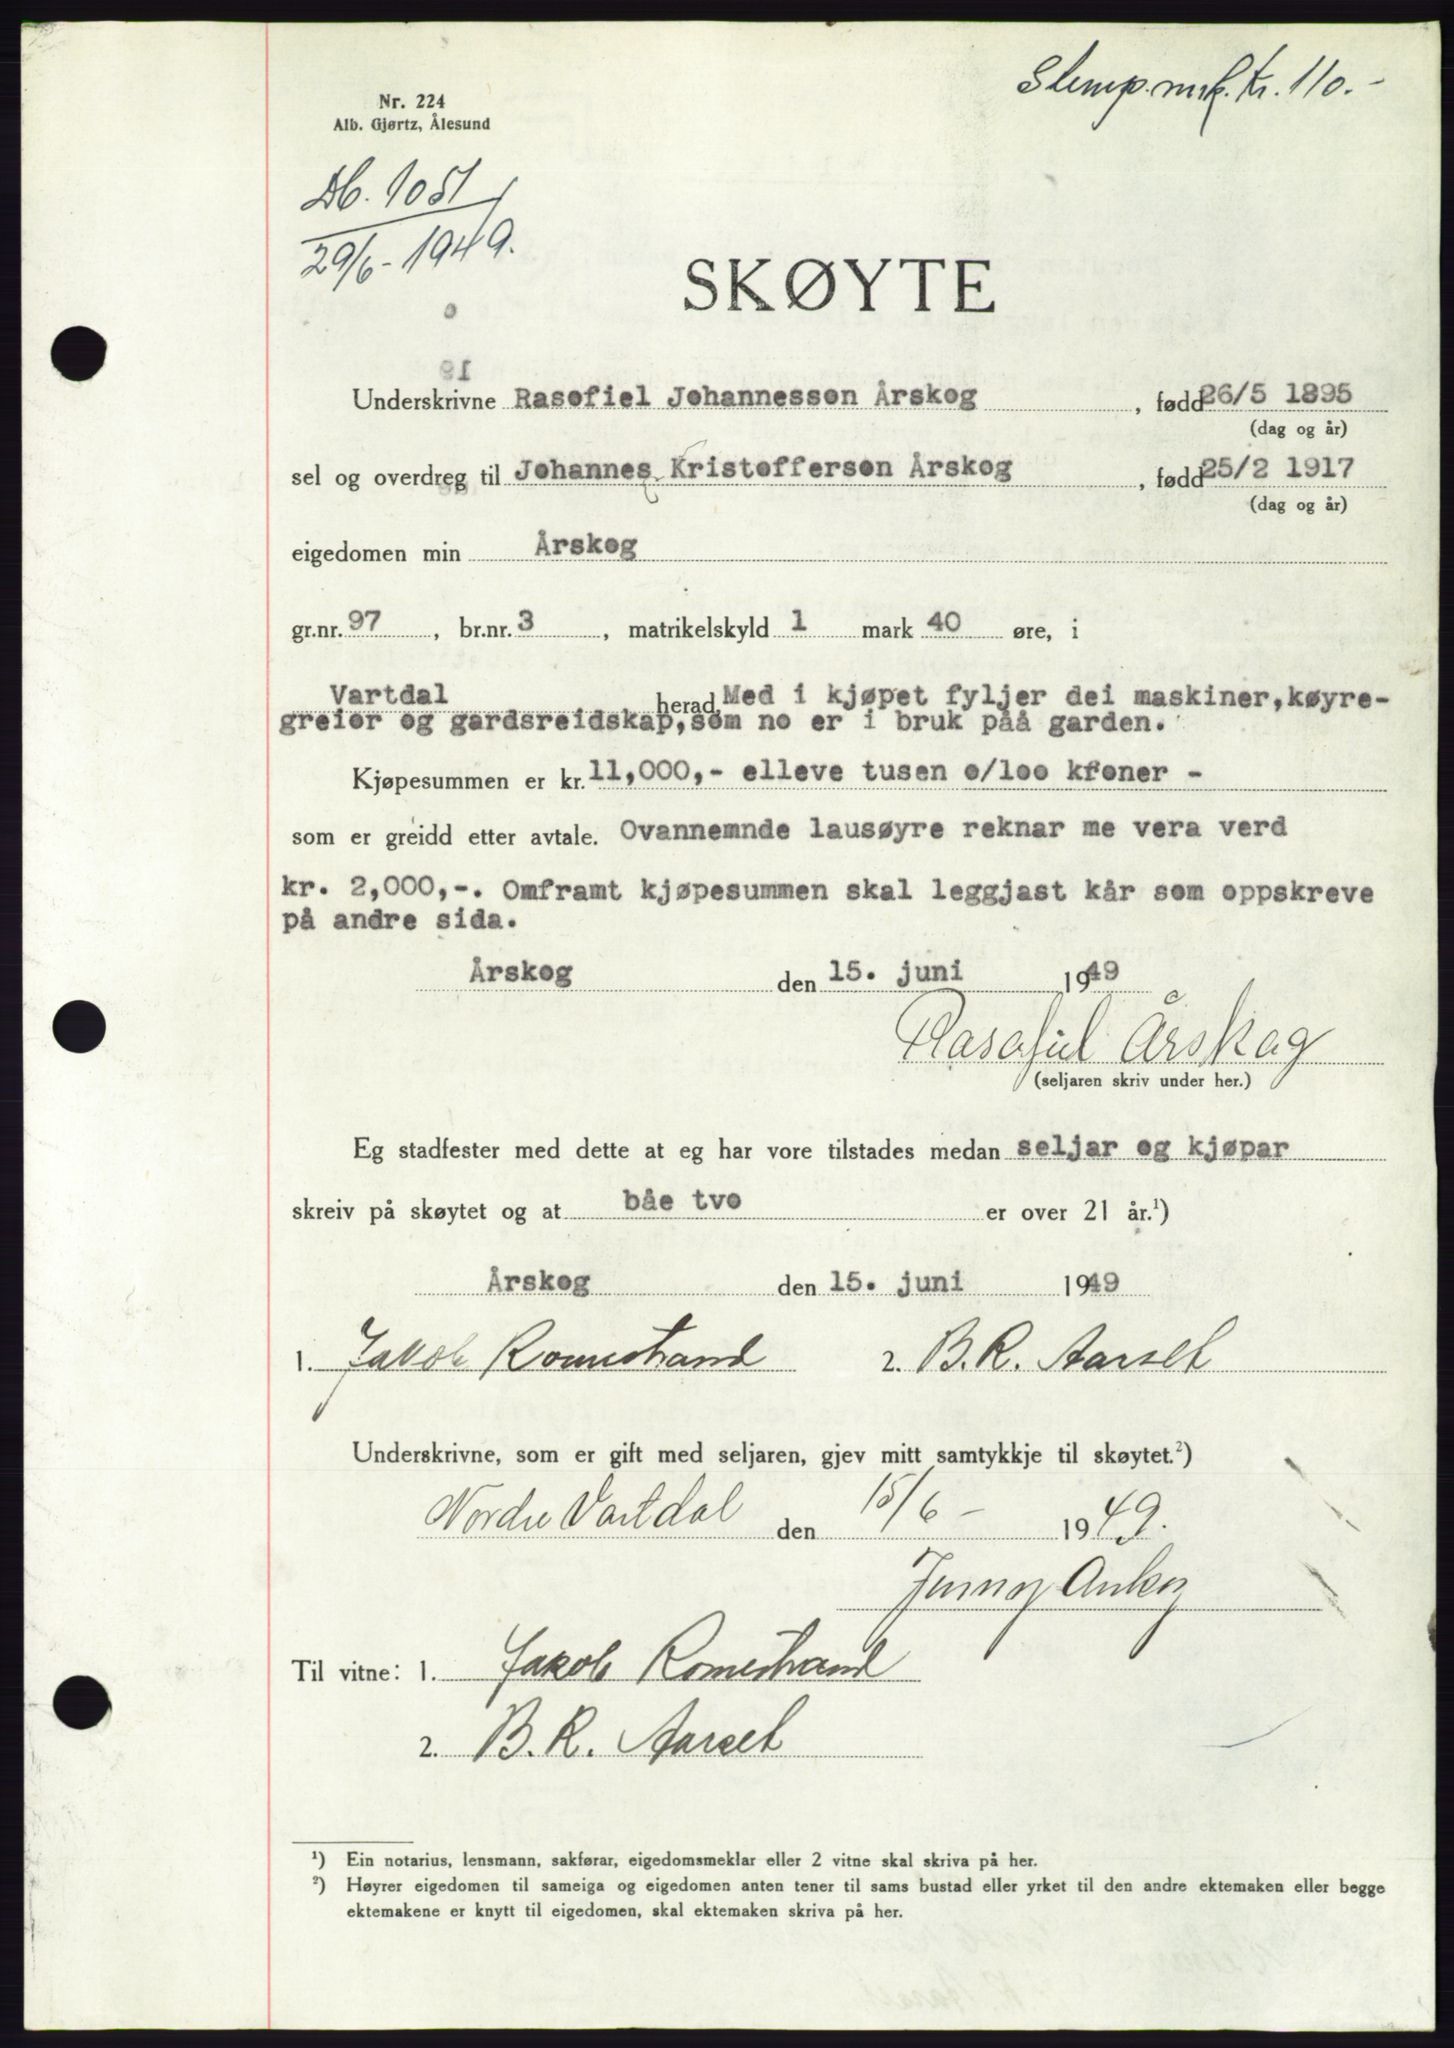 Stemp.mrk. kr. 110.-
Nr. 224
Alb. Gjørtz, Ålesund
Db. 1051
29/6-1949.
SKØYTE
Underskrivne Rasofiel Johannesson Årskog, fødd 26/5 1895
(dag og år)
sel og overdreg til Johannes Kristofferson Årskog, fødd 25/2 1917
(dag og år)
eigedomen min Årskog
gr.nr. 97, br.nr. 3, matrikelskyld 1 mark 40 øre, i
Vartdal herad. Med i kjøpet fyljer dei maskiner, køyre-
greior og gardsreidskap, som no er i bruk påå garden.
Kjøpesummen er kr. 11,000,- elleve tusen o/loo kroner -
som er greidd etter avtale. Ovannemnde lausøyre reknar me vera verd
kr. 2,000,-. Omframt kjøpesummen skal leggjast kår som oppskreve
på andre sida.
Årskog den 15. juni 1949
Rasofiel Årskog
(seljaren skriv under her.)
Eg stadfester med dette at eg har vore tilstades medan seljar og kjøpar
skreiv på skøytet og at båe tvo er over 21 år.¹)
Årskog den 15. juni 1949
1. Jakob Romestrand 2. B. R. Aarset
Underskrivne, som er gift med seljaren, gjev mitt samtykkje til skøytet.²)
Nordre Vartdal den 15/6- 1949.
Jenny
Til vitne: 1. Jakob Romestrand
2. B. R. Aarset
¹) Ein notarius, lensmann, sakførar, eigedomsmeklar eller 2 vitne skal skriva på her.
²) Høyrer eigedomen til sameiga og eigedomen anten tener til sams bustad eller yrket til den andre ektemaken eller begge
ektemakene er knytt til eigedomen, skal ektemaken skriva på her.